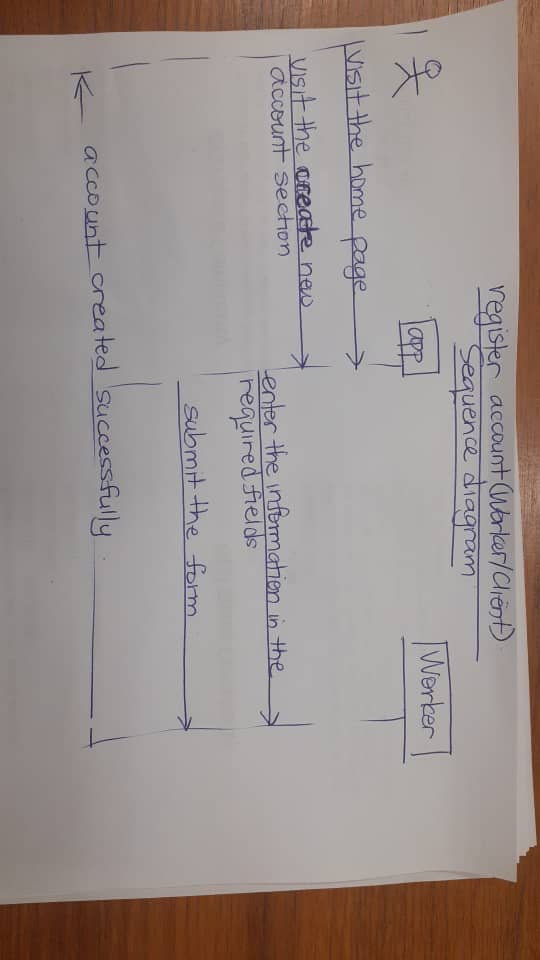 register account (Worker/Client)
sequence diagram
app
Worker
visit the home page
visit the create new
account section
enter the information in the
required fields
submit the form
account created successfully.